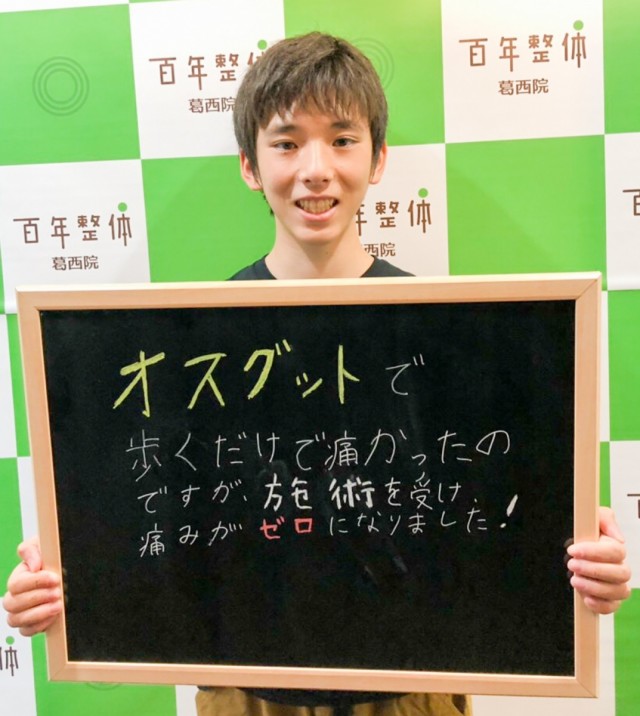 百年整体
葛西院
百年整体
葛西院
百年整体
葛西院
オスグットで
歩くだけで痛かったの
ですが、施術を受け
痛みがゼロになりました!